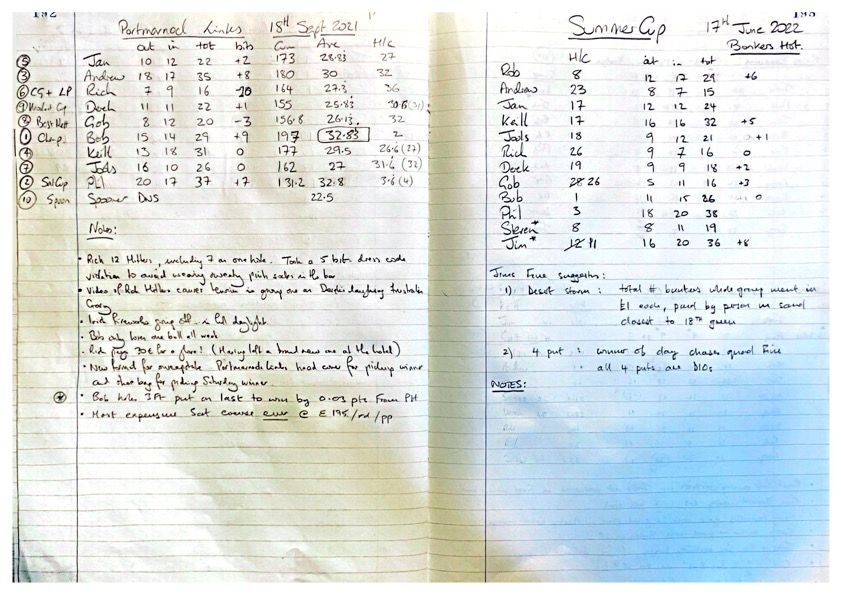 192
Portmarnock Links 18th Sept 2021
out in tot bits Cum Ave. H/c
⑤ Jan 10 12 22 +2 173 28.83 27
③ Andrew 18 17 35 +8 180 30 32
⑥ CG + LP Rich 7 9 16 -10 164 27.3 36
⑨ Wooden Cup Deck 11 11 22 +1 155 25.83 30.8 (31)
⑧ Best Nett Gob 8 12 20 -3 156.8 26.13 32
① Champ Bob 15 14 29 +9 197 32.83 2
④ Keith 13 18 31 0 177 29.5 26.6 (27)
⑦ Jods 16 10 26 0 162 27 31.6 (32)
② Phil 20 17 37 +7 131.2 32.8 3.6 (4)
⑩ Spoon Spooner DNS 22.5
Notes:
• Rich 12 Mitters, including 7 on one hole. Took a 5 bits dress code
violation to avoid wearing sweaty pink socks in the bar
• Video of Rich Mitters causes tension in group one as
• Irish fireworks going off in full daylight.
• Bob only loses one ball all week
• Rich pays 30€ for a glove! (Having left a brand new one at the hotel)
• New format for sweepstake Portmarnock Links head cover for pickup winner
and shoe bag for pickup Saturday winner
• Bob holes 3ft put on last to win by 0.03 pts from Phil
• Most expensive Scot course ever @ £195/rd/pp
193
Summer Cup 17th June 2022
H/C out in tot Bonkers Hot.
Rob 8 12 17 29 +6
Andrew 23 8 7 15
Jan 17 12 12 24
Keith 17 16 16 32 +5
Jods 18 9 12 21 +1
Rich 26 9 7 16 0
Deck 19 9 9 18 +2
Gob 28 26 5 11 16 +3
Bob 1 11 15 26 0
Phil 3 18 20 38
Steven* 8 8 11 19
Jim* 12 11 16 20 36 +8
Jims Fine suggestion:
1) Desert storm: total # bunkers whole group went in
£1 each, paid by person in sand
closest to 18TH green
2) 4 put: winner of day chooses quad Fine
all 4 puts are DIOs
NOTES: